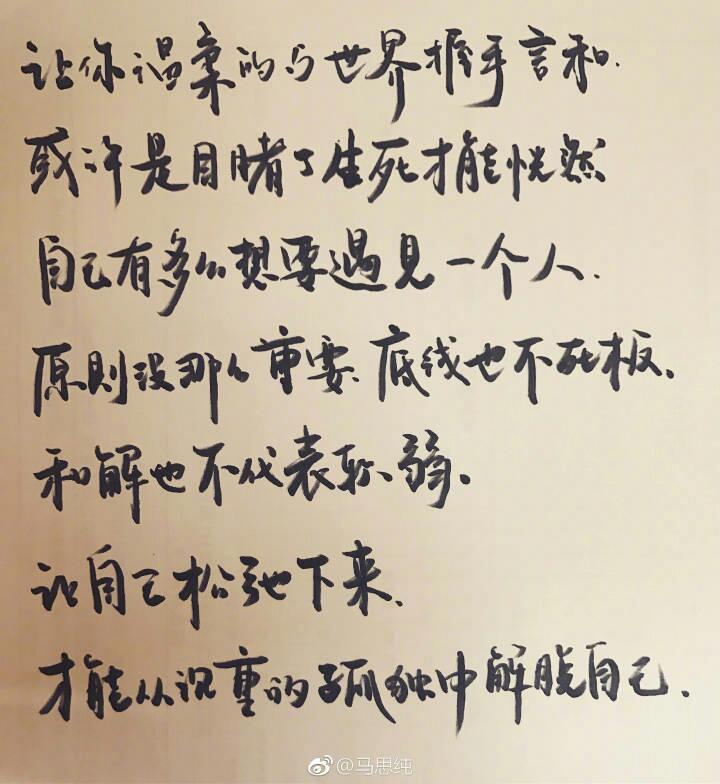 让你温柔的与世界握手言和.
或许是目睹了生死才能恍然
自己有多么想要遇见一个人.
原则没那么重要.底线也不死板、
和解也不代表软弱。
让自己松弛下来、
才能从沉重的孤独中解脱自己.
@马思纯